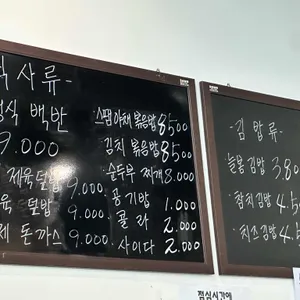 식사류-
정식 백반
9.000
제육덮밥 9.000
덮밥 9.000
돈까스 9.000
스팸야채볶음밥 8500
김치 볶음밥 8500
순두부 찌개 8.000
공기밥 1.000
콜라 2.000
사이다 2.000
-김밥류-
늘봄김밥 3.80
참치김밥 4.5
치즈김밥 4.
점심시간에